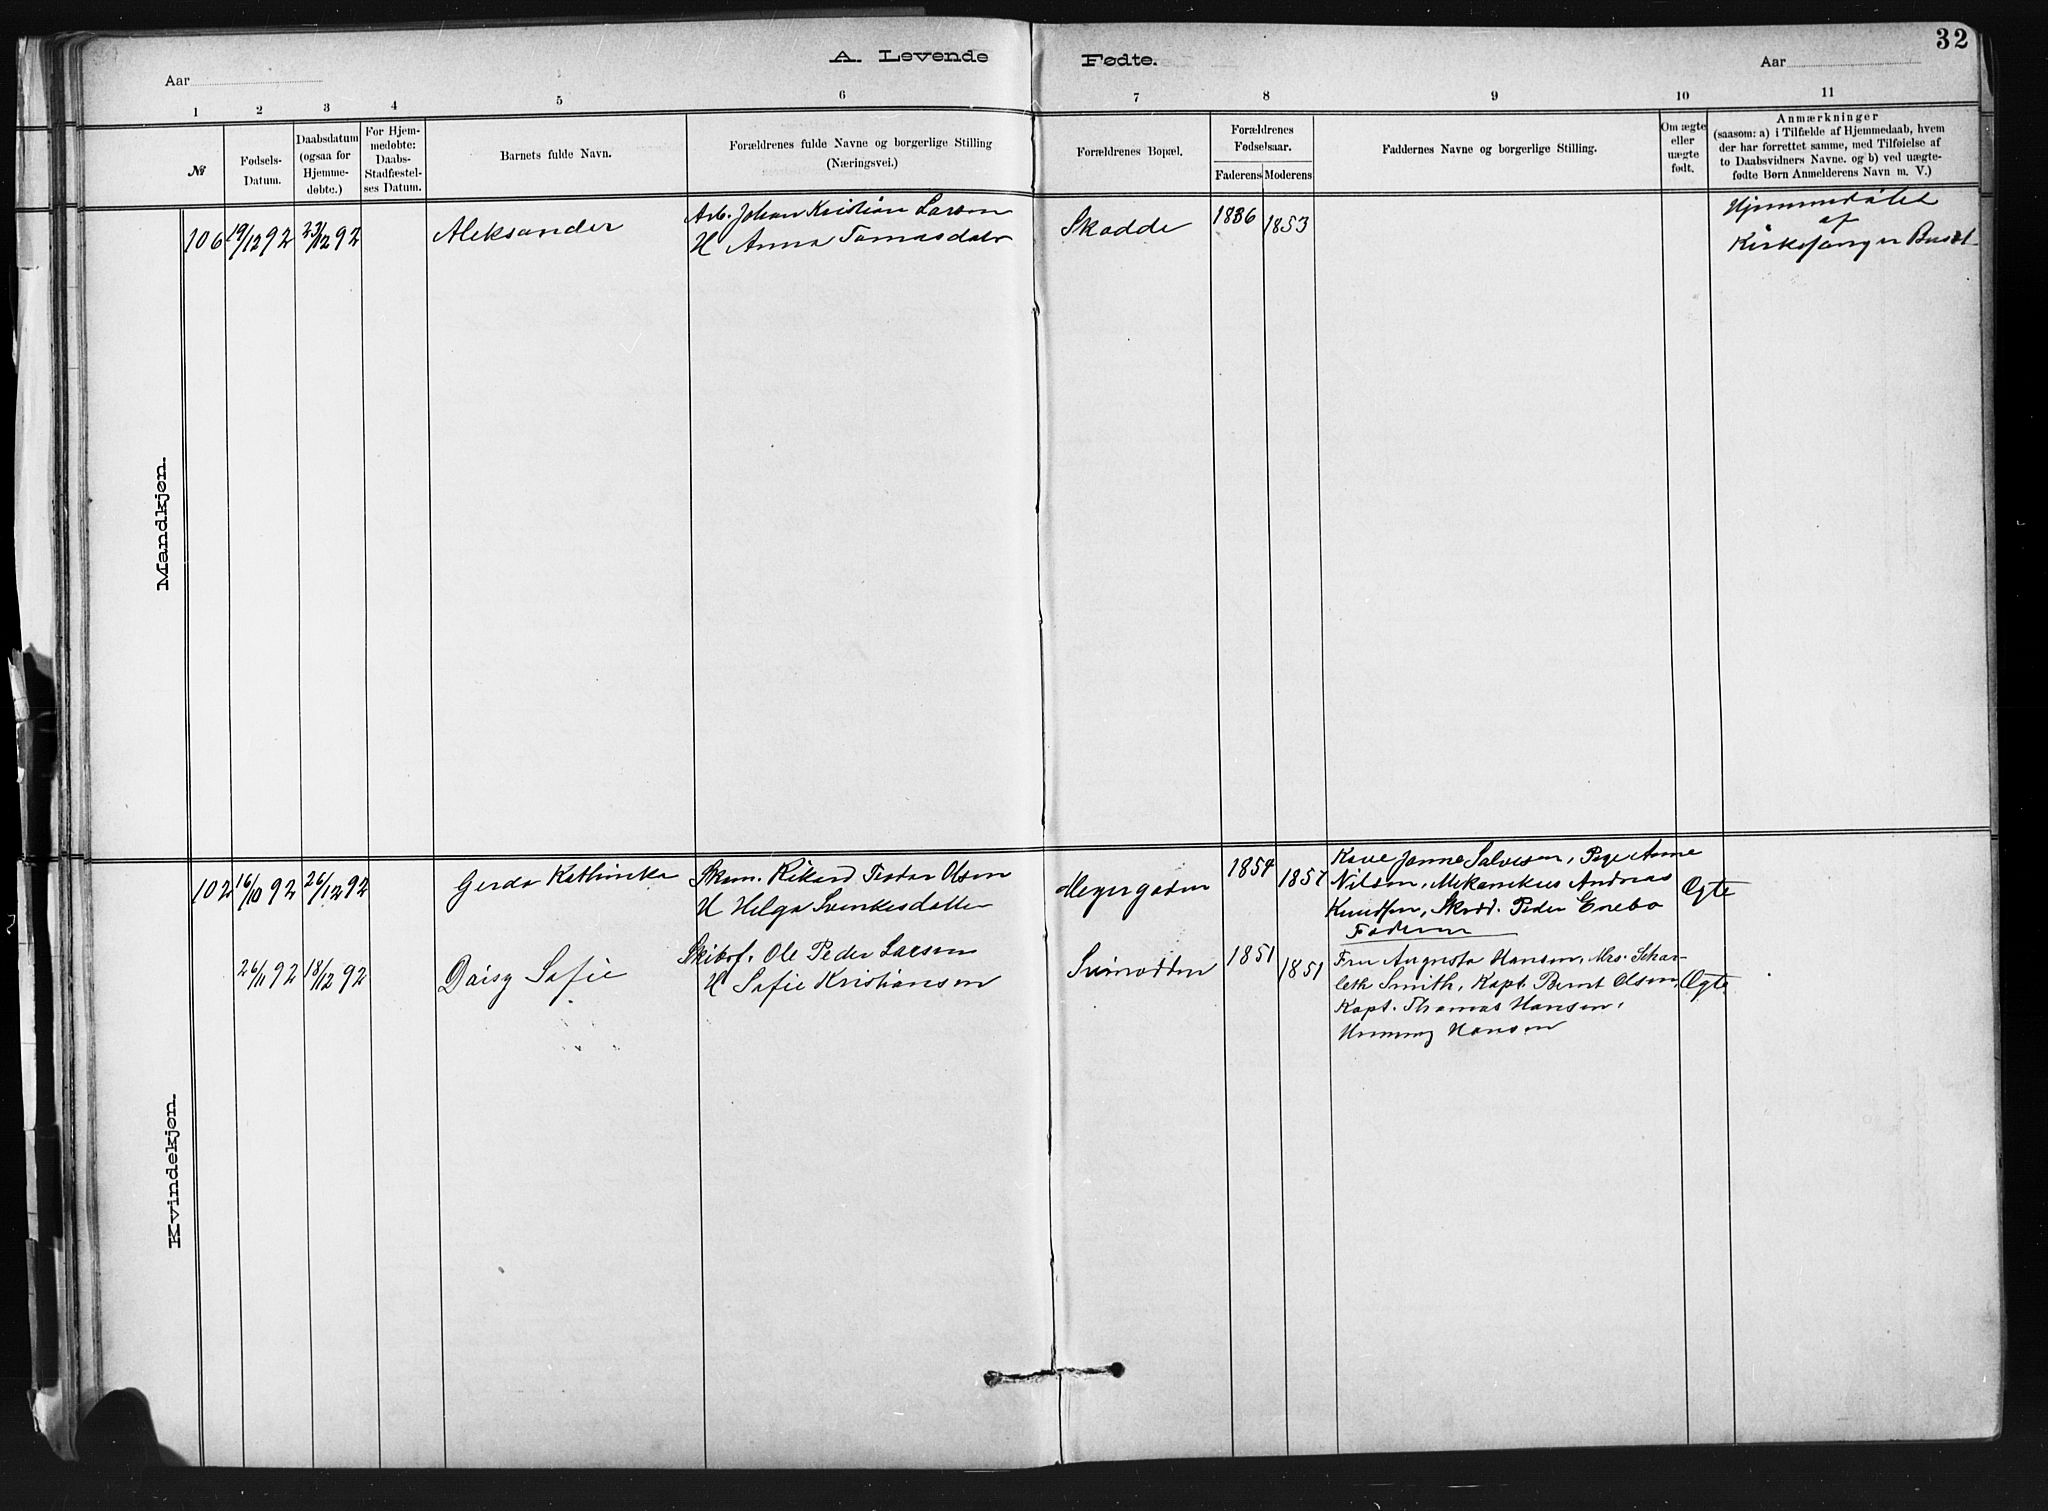 32
A. Levende Fødte.
Aar
Aar
1 2 3 4 5 6 7 8 9 10 11
№
Fødsels-
Datum.
Daabsdatum
(ogsaa for
Hjemme-
døbte.)
For Hjem-
medøbte:
Daabs-
Stadfæstel-
ses Datum.
Barnets fulde Navn.
Forældrenes fulde Navne og borgerlige Stilling
(Næringsvei.)
Forældrenes Bopæl.
Forældrenes
Fødselsaar.
Faderens Moderens
Faddernes Navne og borgerlige Stilling.
Om ægte
eller
uægte
født.
Anmærkninger
(saasom: a) i Tilfælde af Hjemmedaab, hvem
der har forrettet samme, med Tilføielse af
to Daabsvidners Navne. og b) ved uægte-
fødte Børn Anmelderens Navn m. V.)
Mandkjøn.
106 19/12 92 23/12 92 Aleksander
Arb. Johan Kristian Larsen
H Anna Tomasdatr
Skodde 1836 1853
Hjemmedøbt
af
Kirkesanger
Kvindekjøn.
102 16/10 92 26/12 92 Gerda Kathinka
Skom. Rikard Teodor Olsen
H Helga Svenkesdatter
Meyergaden 1854 1857
Kone Janna Salvesen, Pige Anne
Nilsen, Mekanikus Andreas
Knudsen, Skrædd. Peder Enebo
Faderen
Ægte
26/11 92 18/12 92 Daisy Sofie
Skibsf. Ole Peder Larsen
H Sofie Kristiansen
Svinodden 1851 1851
Fru Augusta Hansen, Mrs. Schar-
leth Smith, Kapt. Bernt Olsen,
Kapt. Thomas Hansen,
Henning Hansen
Ægte